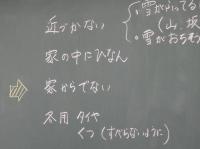 近づかない
家の中にひなん
家からでない
冬用タイヤ
くつ(すべらないように)
・雪が
(山 坂
・雪がおちそ